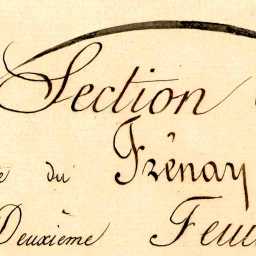 Section
du Frênay
Deuxième Feui